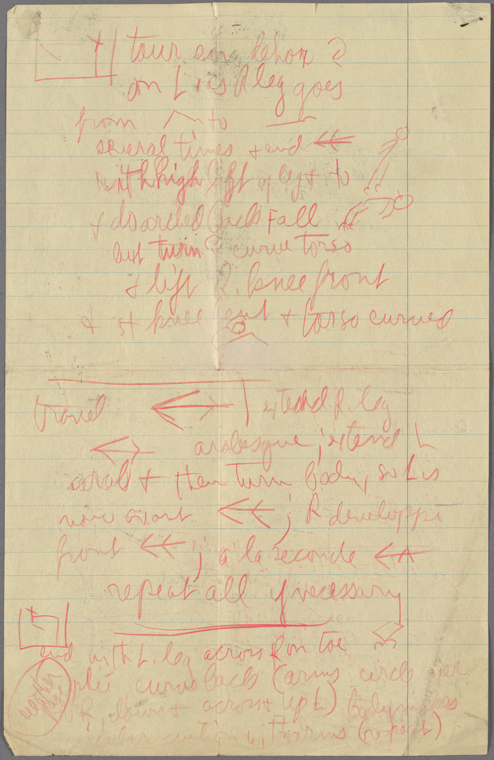 tour en dehor
on L as R leg goes
from to
several times + end
with high lift of leg + to
+ do arched back Fall
but turn + curve torso
+ lift R. knee front
+ st knee out + torso curved
travel extend R. leg
arabesque ; extend L
arab + then turn body, so L is
now front ; R developpé
front ; a la seconde
repeat all if necessary
end with L. leg across R on toe
plié curve back (arms circle
R, down + across + up L)
circular motion w. the arms (repeat L)